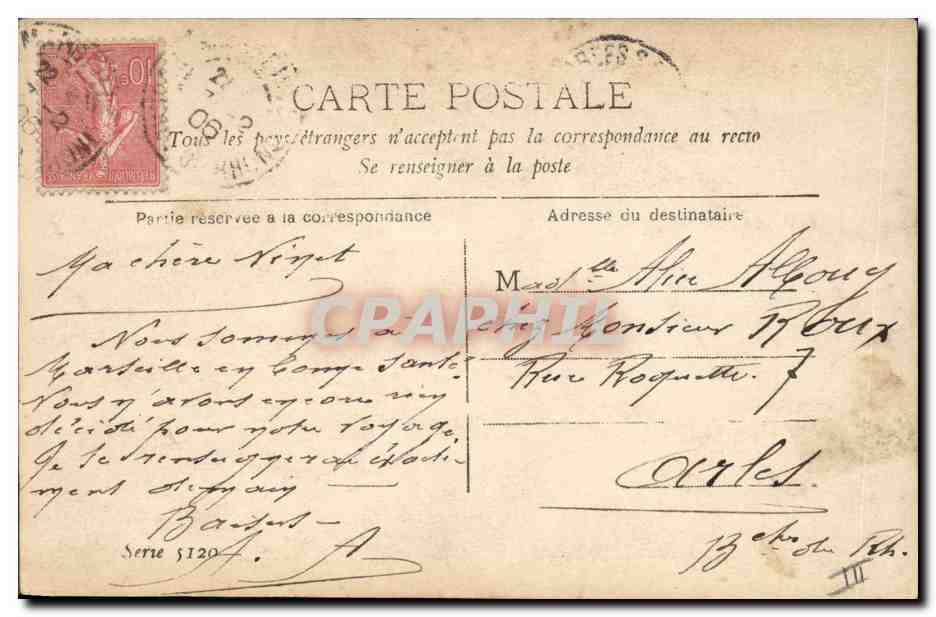 CARTE POSTALE
Tous les pays étrangers n'acceptent pas la correspondance au recto
Se renseigner à la poste
Partie réservée à la correspondance
Adresse du destinataire
Ma chère Ninet
Nous sommes à
Marseille en bonne santé
Nous n'avons encore rien
décidé pour notre voyage.
Je te renseignerai exacte-
ment demain
Baisers
A. A
Serie 5120
Madelle Alice Albouy
chez Monsieur Roux
Rue Roquette. 7
Arles.
Bches du Rh.
III
CPAPHIL
10c